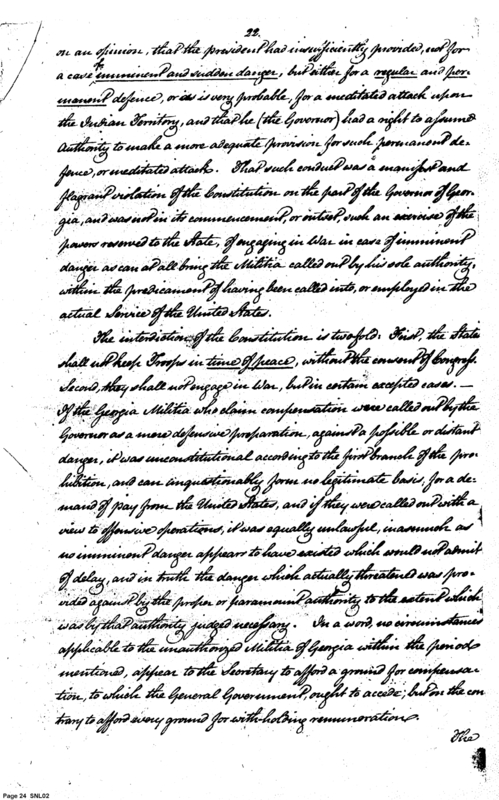 22.
on an opinion, that the president had insufficiently provided, not for
a case of imminent and sudden danger, but either for a regular and per-
manent defence, or as is very probable, for a meditated attack upon
the Indian Territory, and that he (the Governor) had a right to assume
authority to make a more adequate provision for such permanent de-
fence, or meditated attack. That such conduct was a manifest and
flagrant violation of the Constitution on the part of the Governor of Geor-
gia, and was not in its commencement, or outset, such an exercise of the
powers reserved to the State, of engaging in War in case of imminent
danger as can at all bring the Militia called out by his sole authority,
within the predicament of having been called into, or employed in the
actual Service of the United States.
The interdiction of the Constitution is twofold: First, the State
shall not keep Troops in time of peace, without the consent of Congress
Second, they shall not engage in War, but in certain accepted cases. —
If the Georgia Militia who claim compensation were called out by the
Governor as a mere defensive preparation, against a possible or distant
danger, it was unconstitutional according to the first branch of the pro-
hibition, and can unquestionably form no legitimate basis, for a de-
mand of pay from the United States, and if they were called out with a
view to offensive operations, it was equally unlawful, inasmuch as
no imminent danger appears to have existed which would not admit
of delay, and in truth the danger which actually threatened was pro-
vided against by the proper or paramount authority to the extent which
was by that authority judged necessary. In a word, no circumstances
applicable to the unauthorized Militia of Georgia within the periods
mentioned, appear to the Secretary to afford a ground for compensa-
tion, to which the General Government, ought to accede; but on the con
trary to afford every ground for with-holding remuneration.
The
Page 24 SNL02